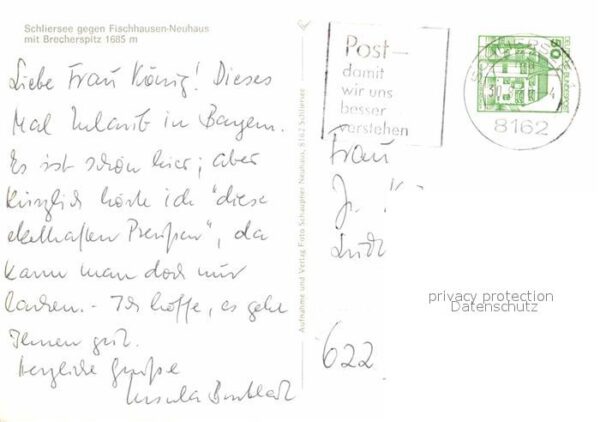 Schliersee gegen Fischhausen-Neuhaus
mit Brecherspitz 1685 m
Liebe Frau König! Dieses
Mal Urlaub in Bayern.
Es ist schön hier; aber
kürzlich hörte ich "diese
ekelhaften Preußen", da
kann man doch nur
lachen. - Ich hoffe, es geht
Ihnen gut.
Herzliche Grüße
Ursula
Aufnahme und Verlag Foto Schaupner Neuhaus, 8162 Schliersee
Post—
damit
wir uns
besser
verstehen
SCHLIERSEE
8162
50
DEUTSCHE BUNDESPOST
Frau
622
privacy protection
Datenschutz